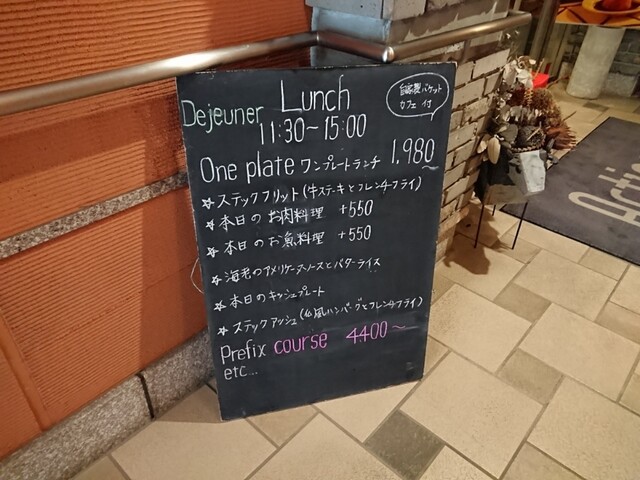 Dejeuner Lunch
11:30~15:00
自家製バケット
カフェ付
One plate ワンプレートランチ 1.980
☆ ステックフリット(牛ステーキとフレンチフライ)
☆ 本日のお肉料理 +550
☆ 本日のお魚料理 +550
☆ 海老のアメリケーヌソースとバターライス
☆ 本日のキッシュプレート
☆ ステックアッシュ(仏風ハンバーグとフレンチフライ)
Prefix course 4400~
etc...